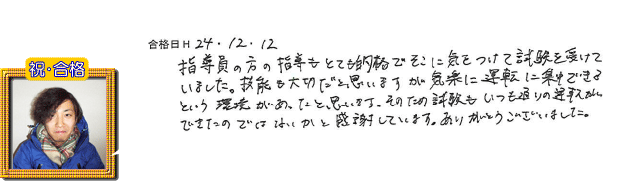 祝・合格
合格日H 24・12・12
指導員の方の指導もとても的格でそこに気をつけて試験を受けて
いました。技能も大切だと思いますが気楽に運転に集中できる
という環境があったと思います。そのため試験もいつも通りの運転が
できたのではないかと感謝しています。ありがとうございました。